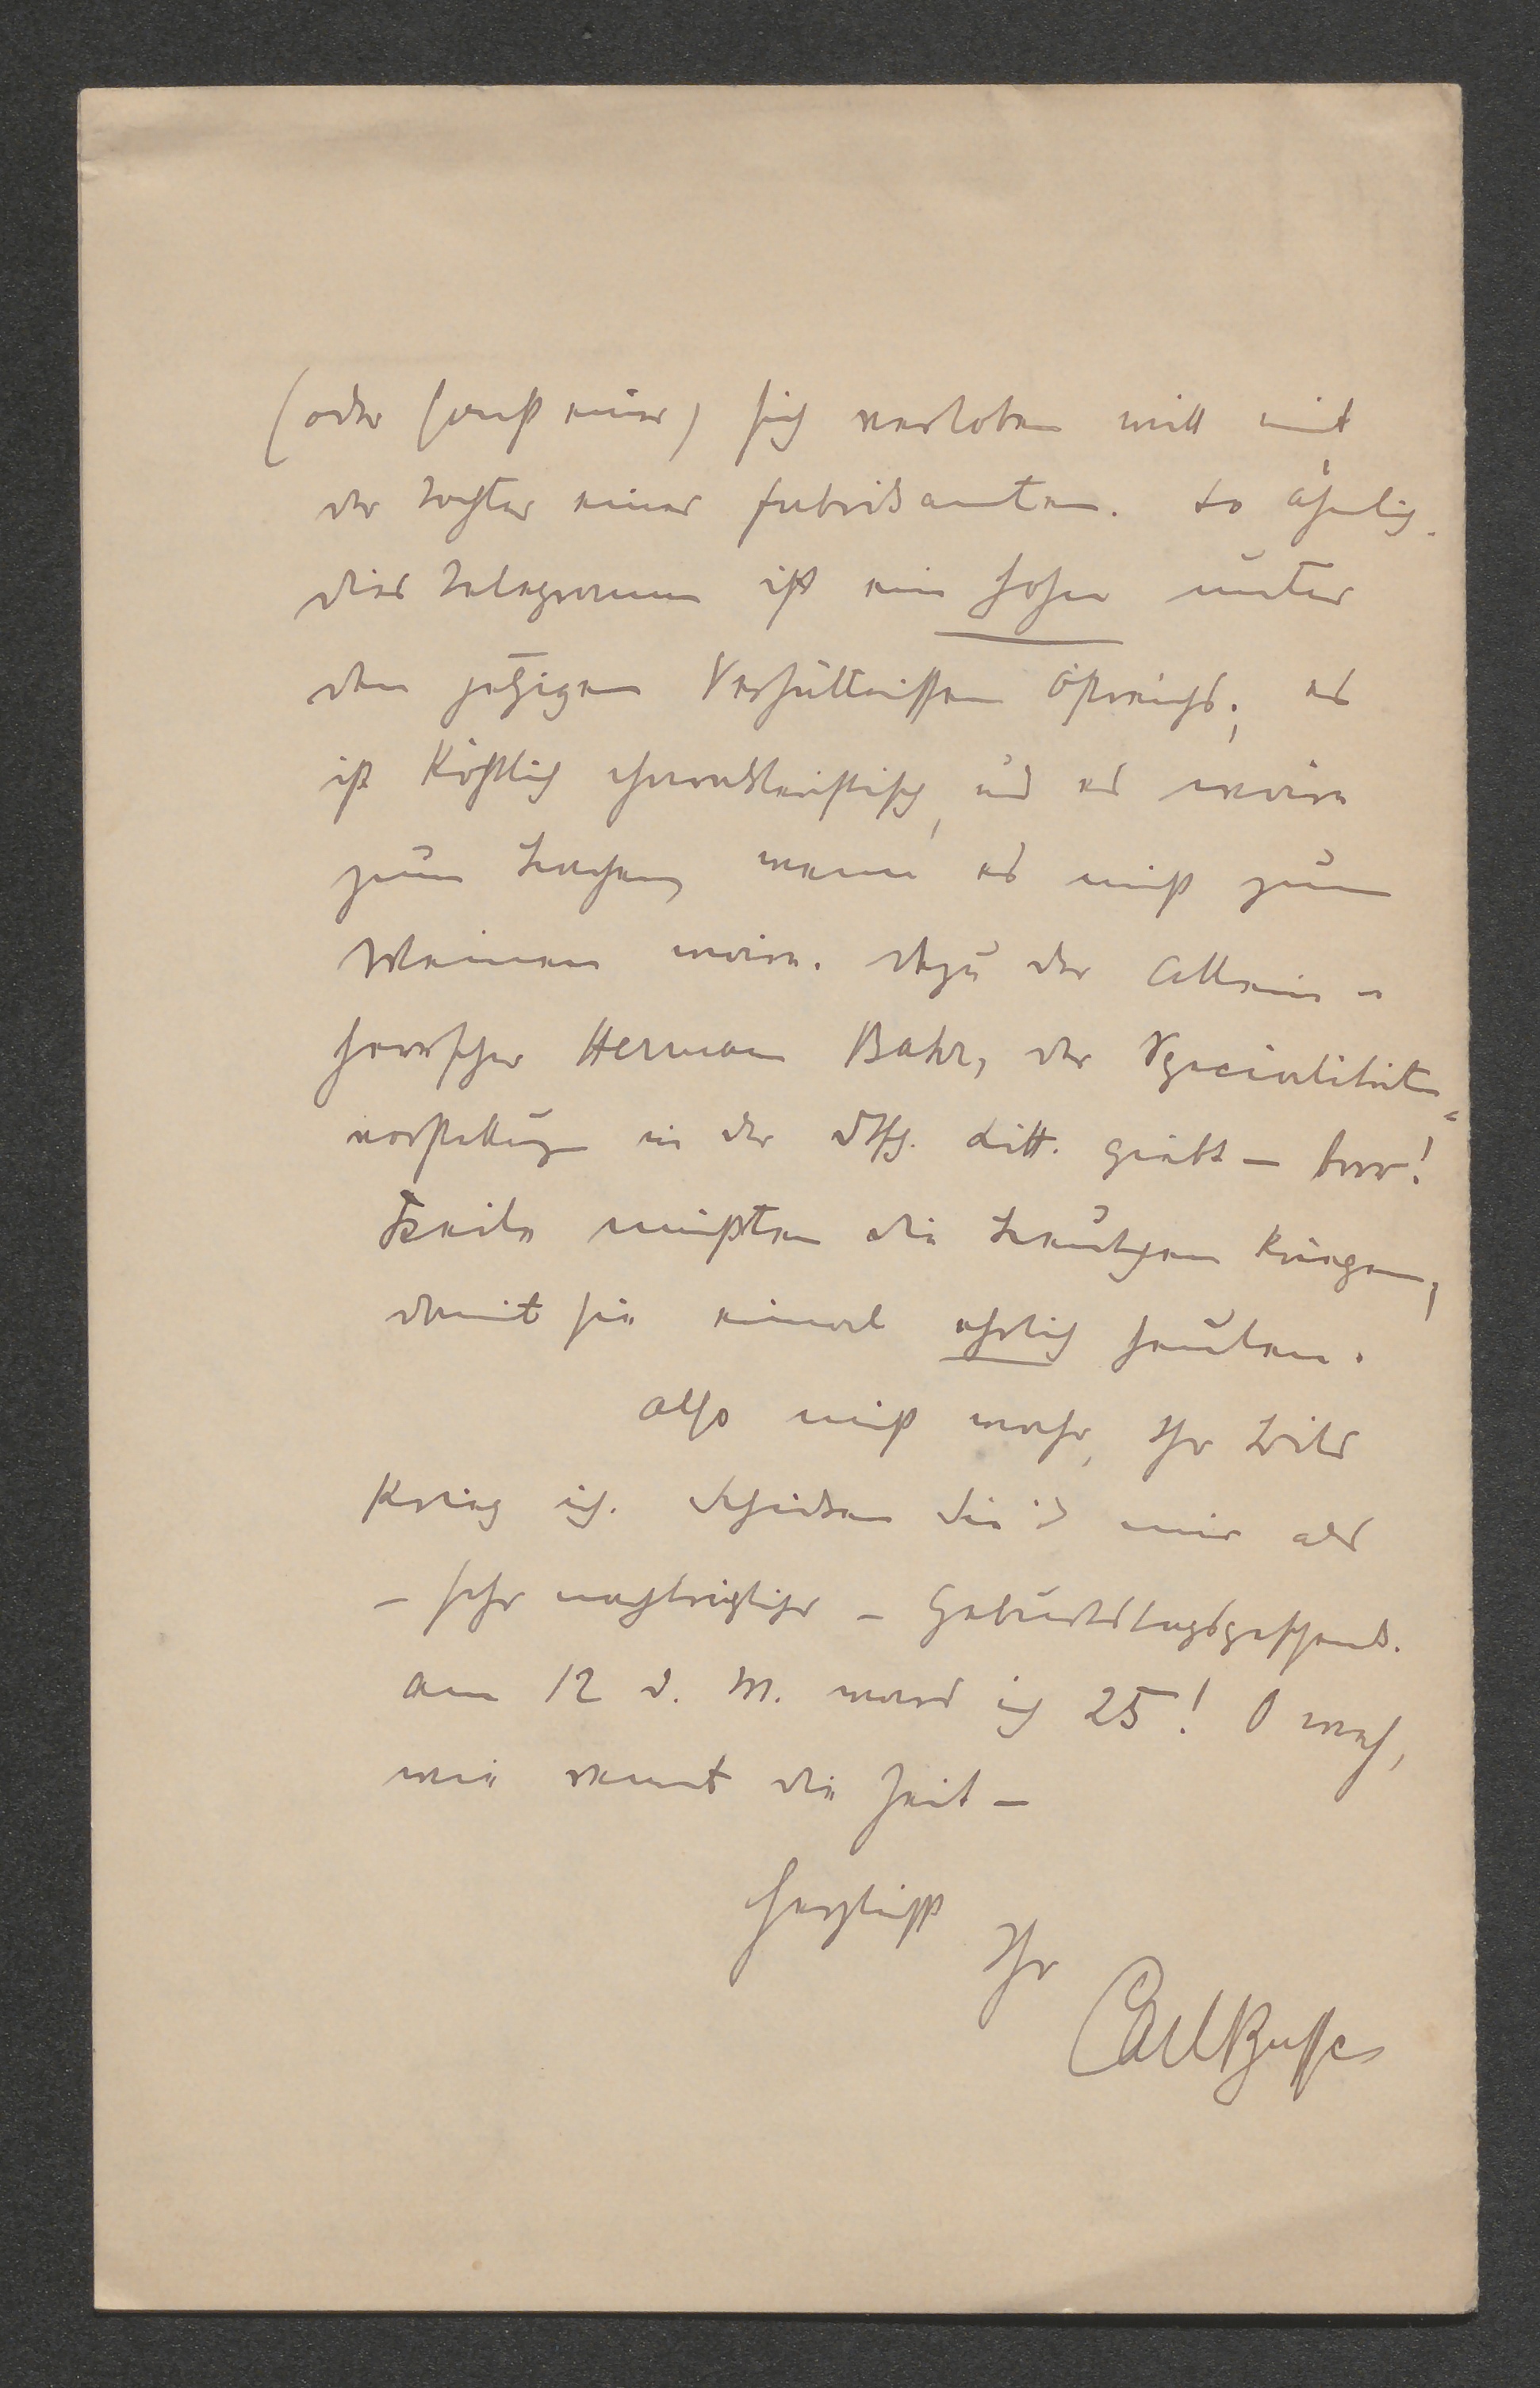 (oder sonst einer) sich verloben will mit
der Tochter eines Fabrikanten. So ähnlich.
Dies Telegramm ist ein Hohn unter
den jetzigen Verhältnissen Östreichs; es
ist köstlich charakteristisch, und es wäre
zum Lachen, wenn es nicht zum
Weinen wäre. Dazu der Allein-
herrscher Herman Bahr, der Specialitäten-
vorstellung in der Dtsch. Litt. giebt – brrr!
Keile müßten die Leutchen kriegen,
damit sie einmal ehrlich heulen.
Also nicht wahr, Ihr Bild
krieg ich. Schicken Sie's mir als
– sehr nachträgliches – Geburtstagsgeschenk.
Am 12 d. M. ward ich 25! O weh,
wie rennt die Zeit –
Herzlichst
Ihr
Carl Busse